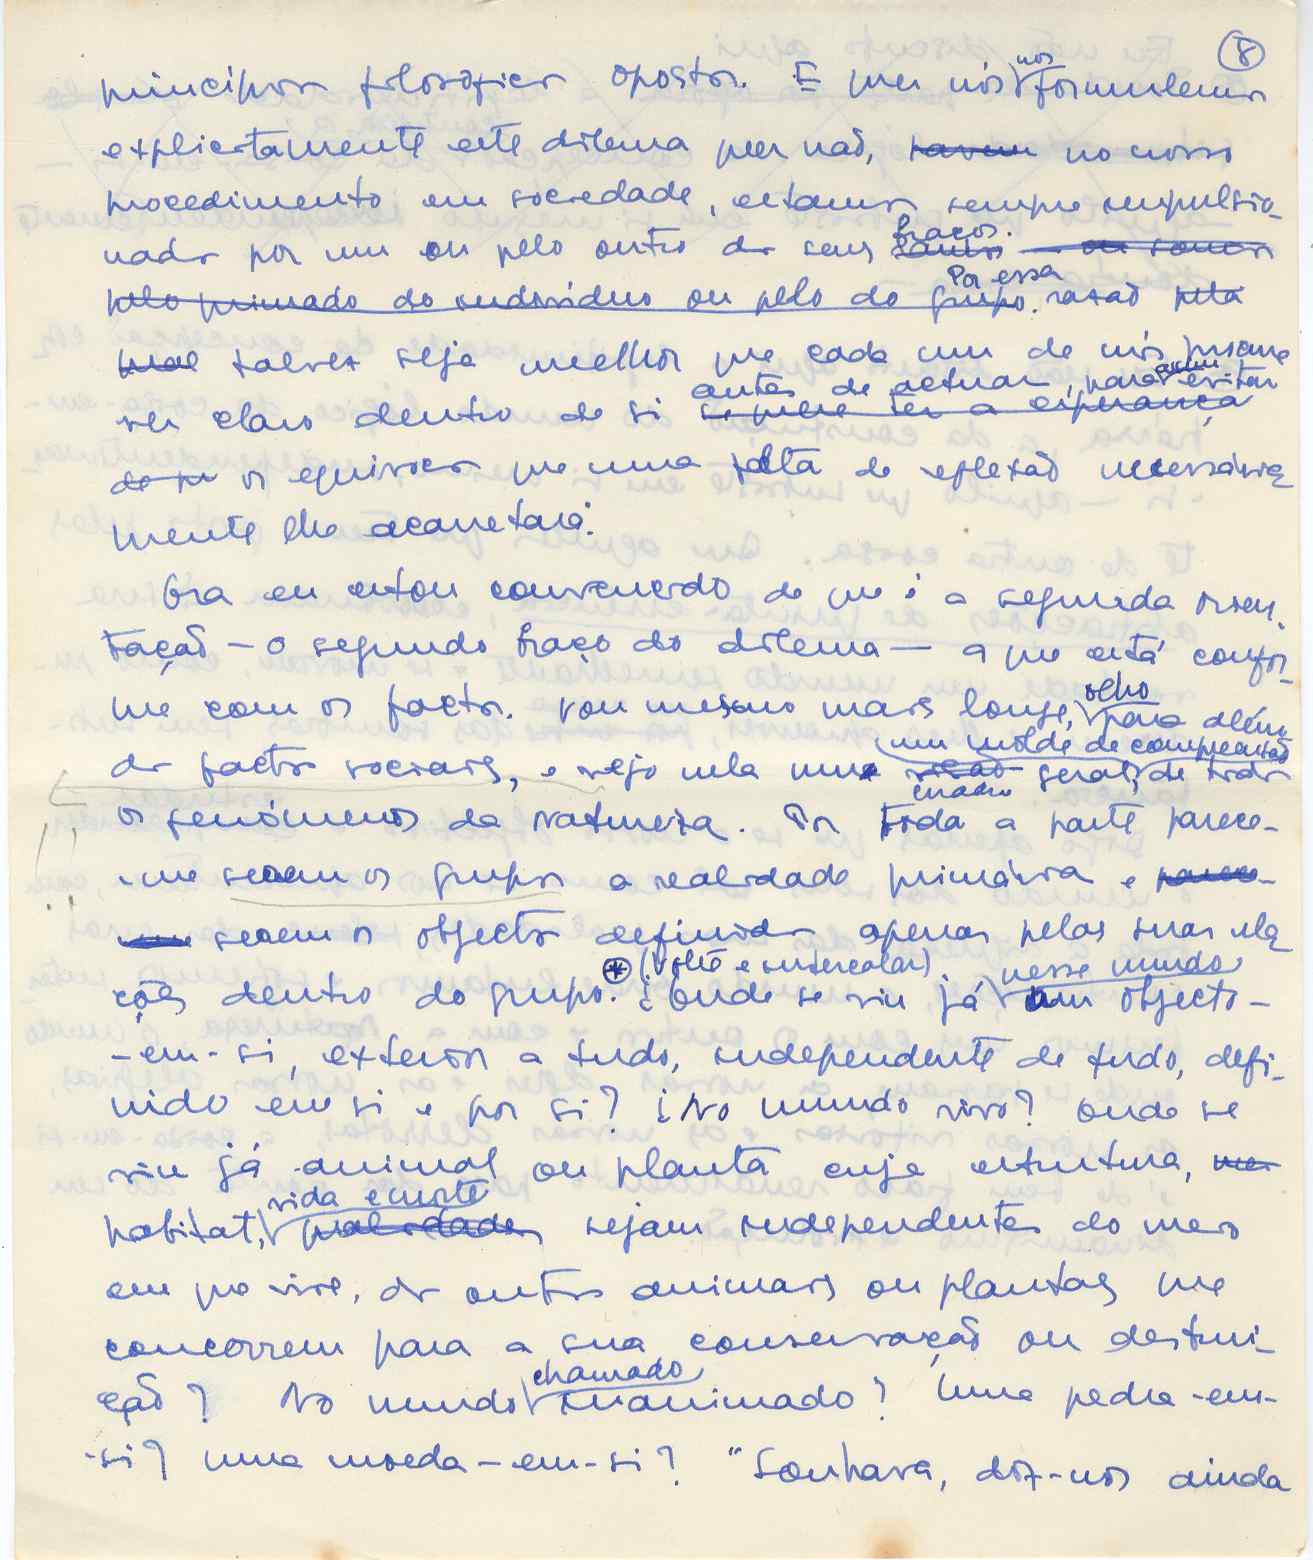 8
princípios filosóficos opostos. E quer nós nos formulemos
explicitamente este dilema quer não, no nosso
procedimento em sociedade, estamos sempre impulsio-
nados por um ou pelo outro dos seus braços. ou somos
pelo primado do indivíduo ou pelo do grupo. Por essa razão pela
qual talvez seja melhor que cada um de nós procure
ver claro dentro de si antes de actuar, para assim evitar
se quere ter a esperança
os equívocos que uma falta de reflexão necessária
mente lhe acarretará.
Ora eu estou convencido de que é a segunda orien-
tação — o segundo braço do dilema — a que está confor-
me com os factos. Vou mesmo mais longe, olho para além
dos factos sociais, e vejo nela um molde de compreensão
visão quadro geral, de todos
os fenómenos da natureza. Por toda a parte parece-
-me serem os grupos a realidade primária e parece-
serem os objectos definidos apenas pelas suas rela
ções dentro do grupo. (Volta e intercalar). ¿Onde se viu já nesse mundo um objecto-
-em-si, exterior a tudo, independente de tudo, defi-
nido em si e por si? ¿No mundo vivo? Onde se
viu já animal ou planta cuja estrutura,
habitat, vida e morte sejam independentes do meio
em que vive, dos outros animais ou plantas que
concorrem para a sua conservação ou destrui-
ção? No mundo chamado inanimado? Uma pedra-em-
-si? uma moeda-em-si? "Sonhava, diz-nos ainda